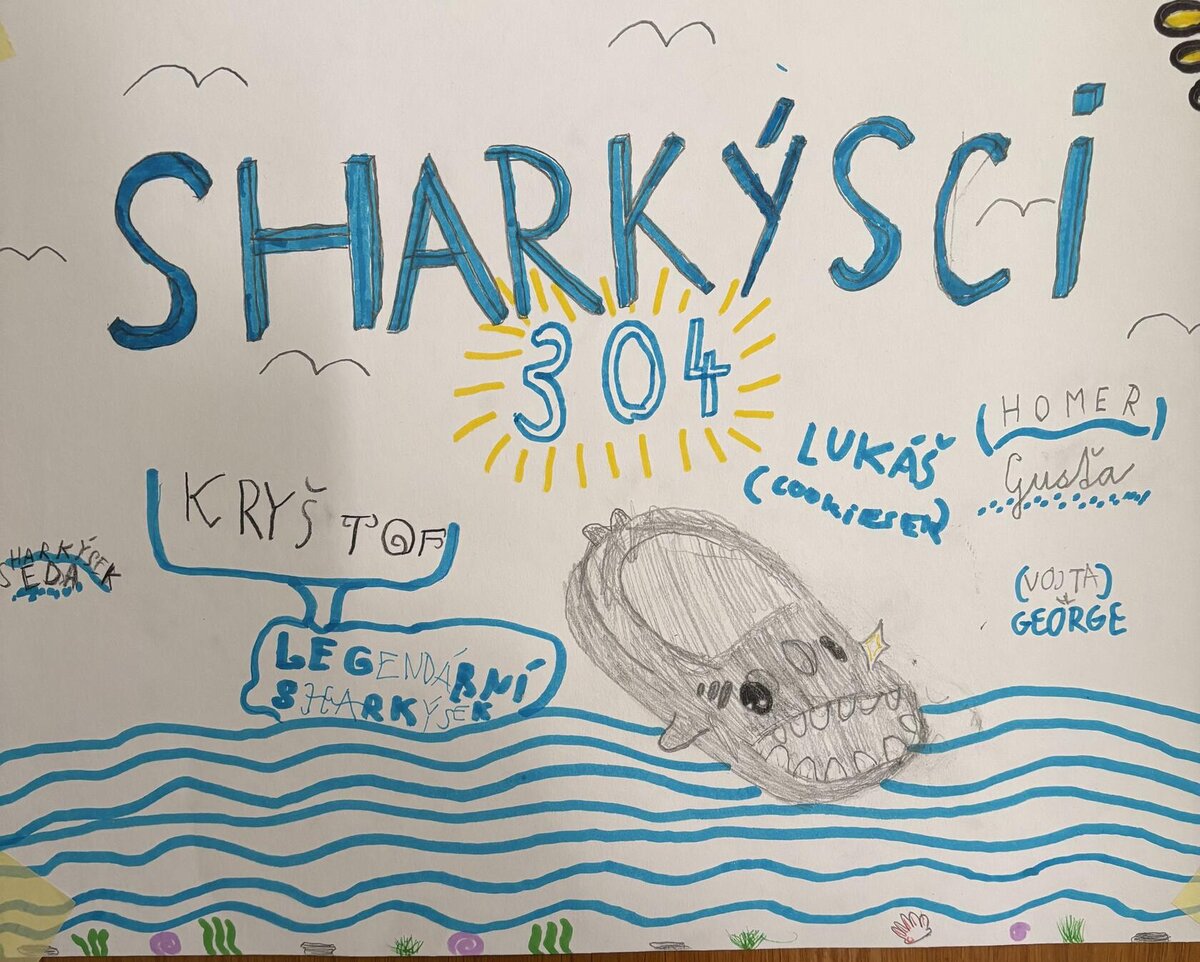 SHARKÝSCI
304
KRYŠTOF
LEGENDÁRNÍ
SHARKÝSEK
SHARKÝSEK
SEDA
LUKÁŠ
(COOKIESEK)
(HOMER)
Gusťa
(VOJTA)
GEORGE